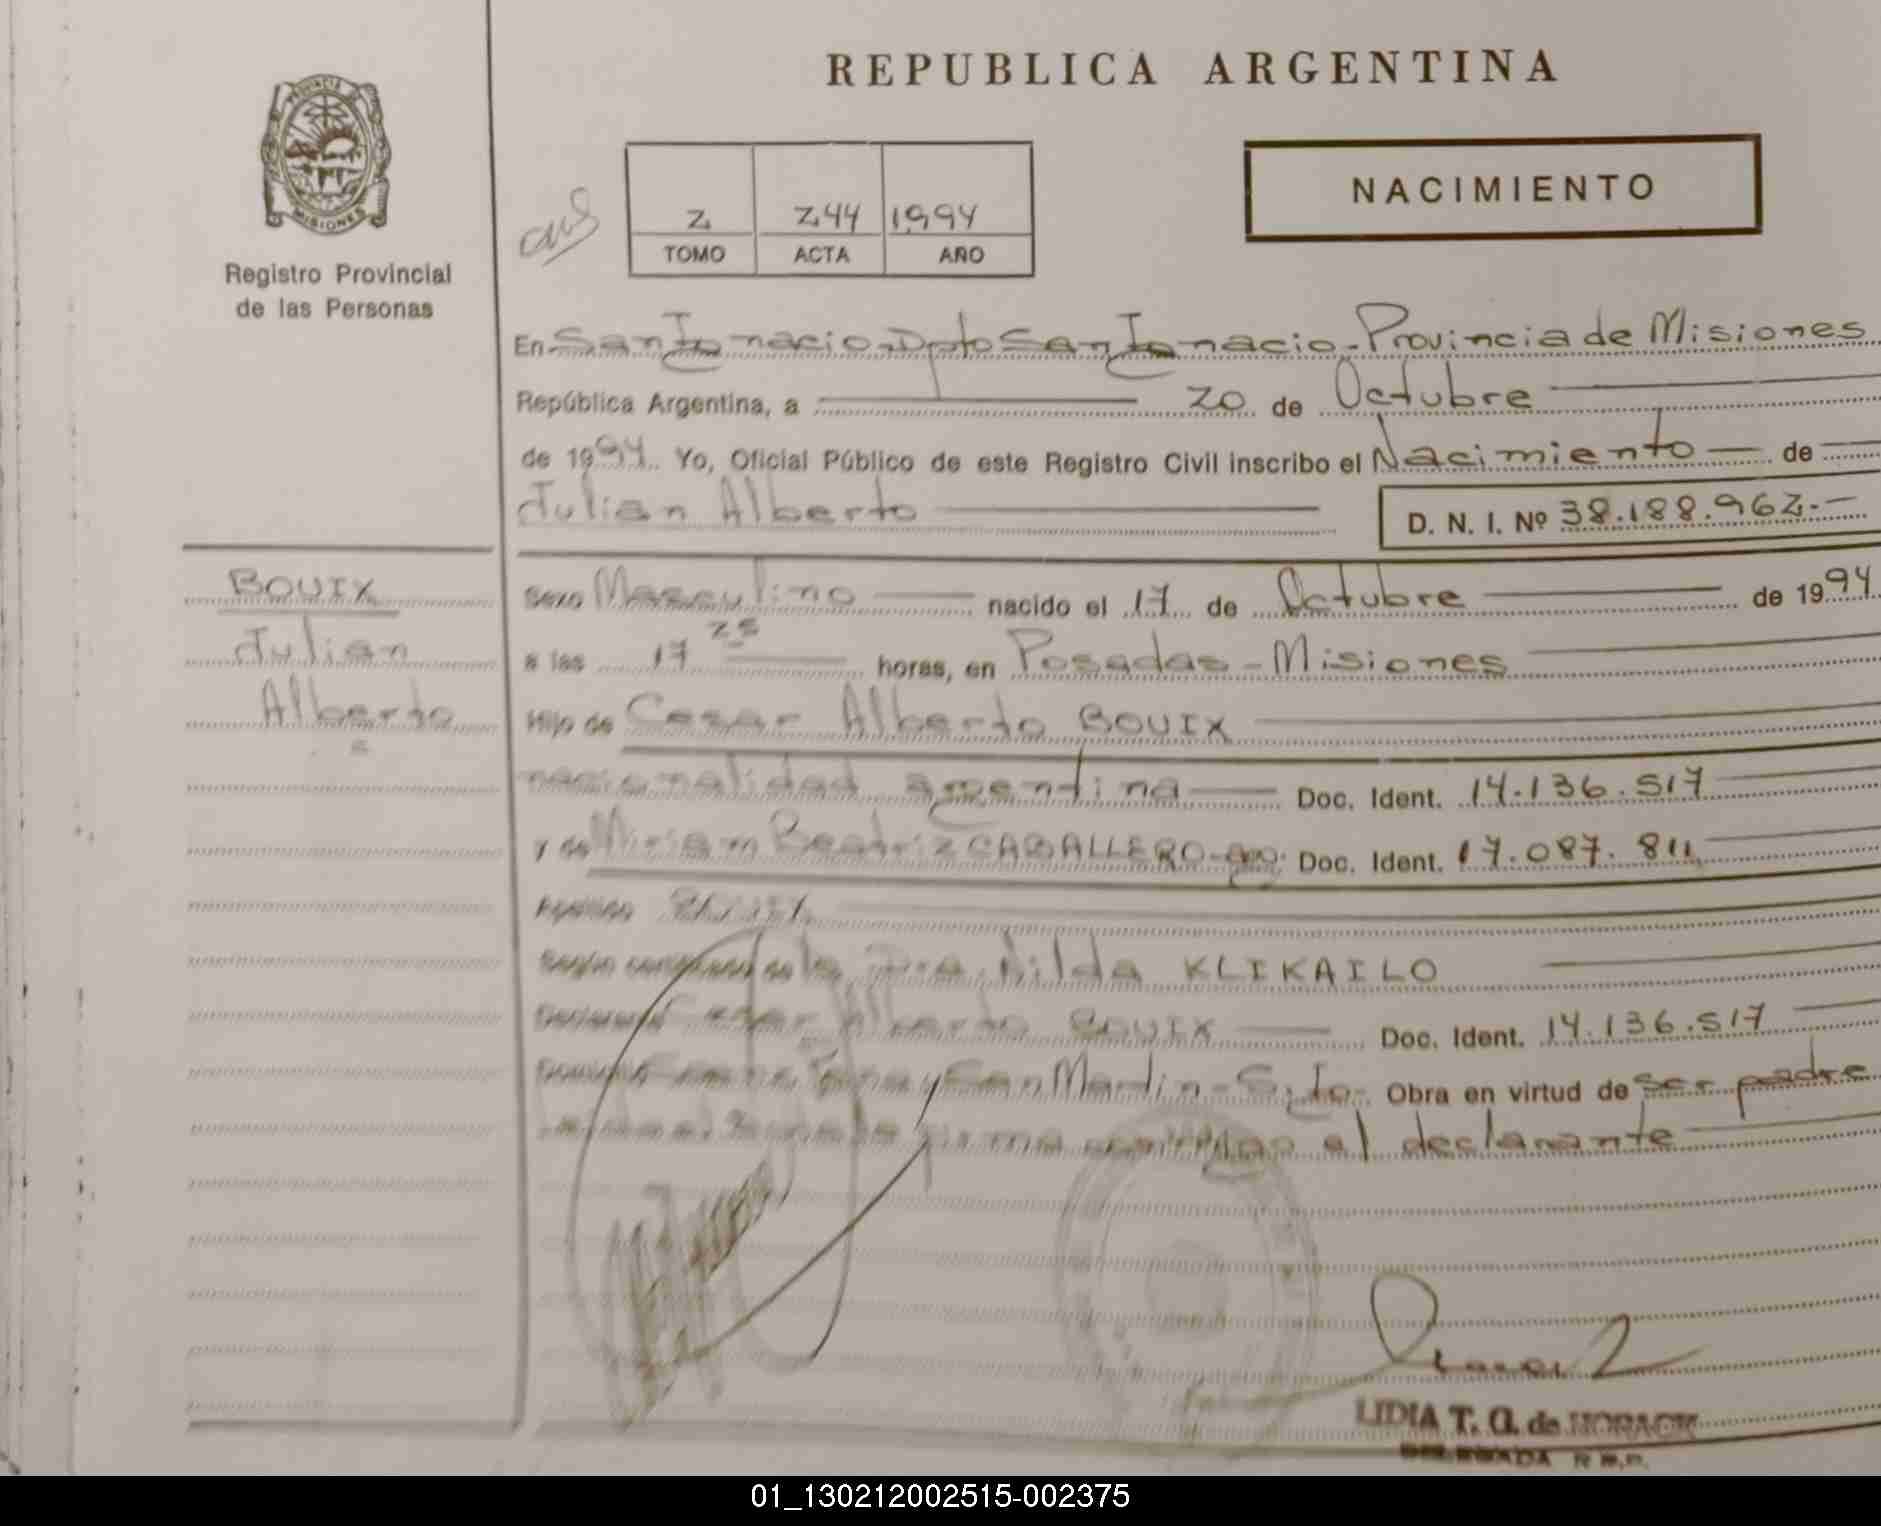 REPUBLICA ARGENTINA
PROVINCIA DE
MISIONES
Registro Provincial
de las Personas
2 244 1994
TOMO ACTA AÑO
NACIMIENTO
En San Ignacio Dpto San Ignacio - Provincia de Misiones
República Argentina, a 20 de Octubre
de 1994. Yo, Oficial Público de este Registro Civil inscribo el Nacimiento de
Julian Alberto D. N. I. Nº 38.188.962.-
BOUIX
Julian
Alberto
Sexo Masculino nacido el 17 de Octubre de 1994
a las 17 25 horas, en Posadas - Misiones
Hijo de Cesar Alberto BOUIX
nacionalidad argentina Doc. Ident. 14.136.517
y de Miriam Beatriz CABALLERO - Doc. Ident. 17.087.811
Hilda KLIKAILO
Declarante Cesar Alberto BOUIX Doc. Ident. 14.136.517
Domicilio y San Martin - S. Ig. Obra en virtud de ser padre
firma conmigo el declarante
LIDIA T. G. de HORACK
DELEGADA R.P.P.
01_130212002515-002375